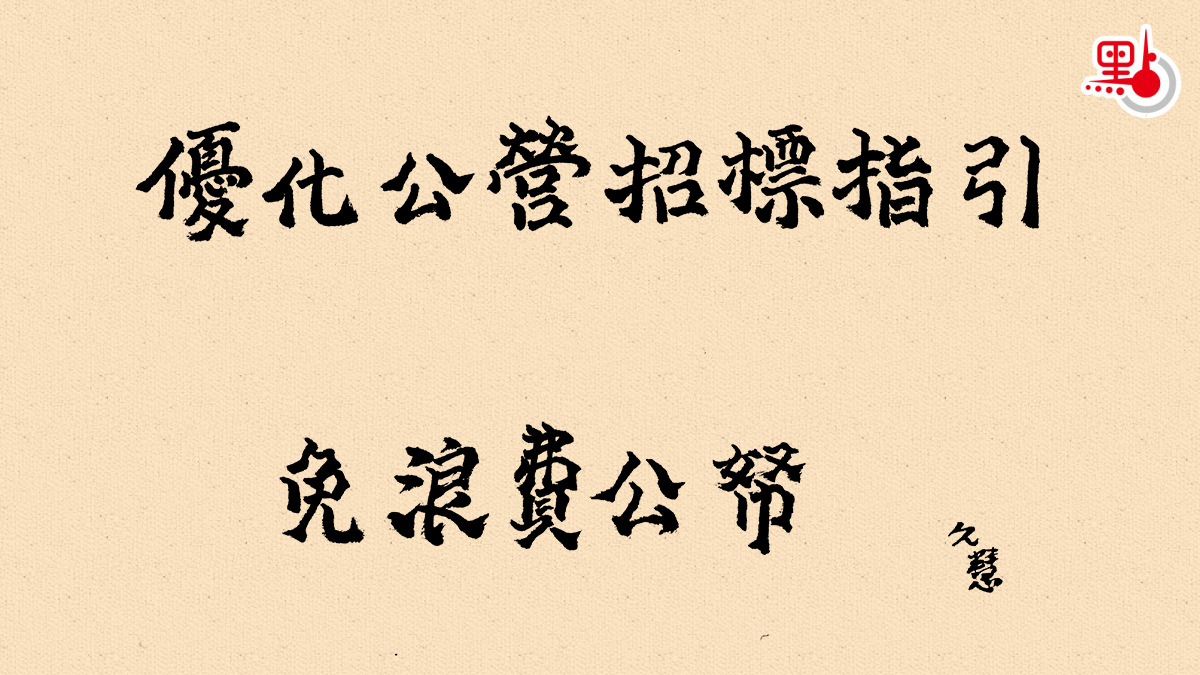 點
優化公營招標指引
免浪費公帑
久慧